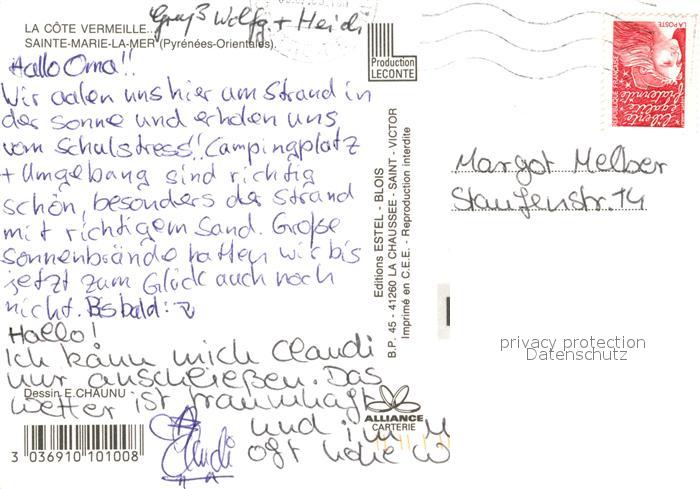 Gruß Wolfg. + Heidi
LA CÔTE VERMEILLE...
SAINTE-MARIE-LA-MER (Pyrénées-Orientales).
Hallo Oma!!
Wir aalen uns hier am Strand in
der Sonne und erholen uns
vom Schulstress!! Campingplatz
+ Umgebung sind richtig
schön, besonders der Strand
mit richtigem Sand. Große
Sonnenbrände hatten wir bis
jetzt zum Glück auch noch
nicht. Bis bald:
Hallo!
Ich kann mich Claudi
nur anschließen. Das
Wetter ist traumhaft
und im M
oft hohe W
Claudi
Dessin E.CHAUNU
3 036910 101008
Production
LECONTE
Editions ESTEL - BLOIS
B.P. 45 - 41260 LA CHAUSSEE - SAINT - VICTOR
Imprimé en C.E.E. - Reproduction interdite
ALLIANCE
CARTERIE
LA POSTE
RÉPUBLIQUE FRANÇAISE
Liberté
égalité
fraternité
Margot Melber
Staufenstr. 14
privacy protection
Datenschutz